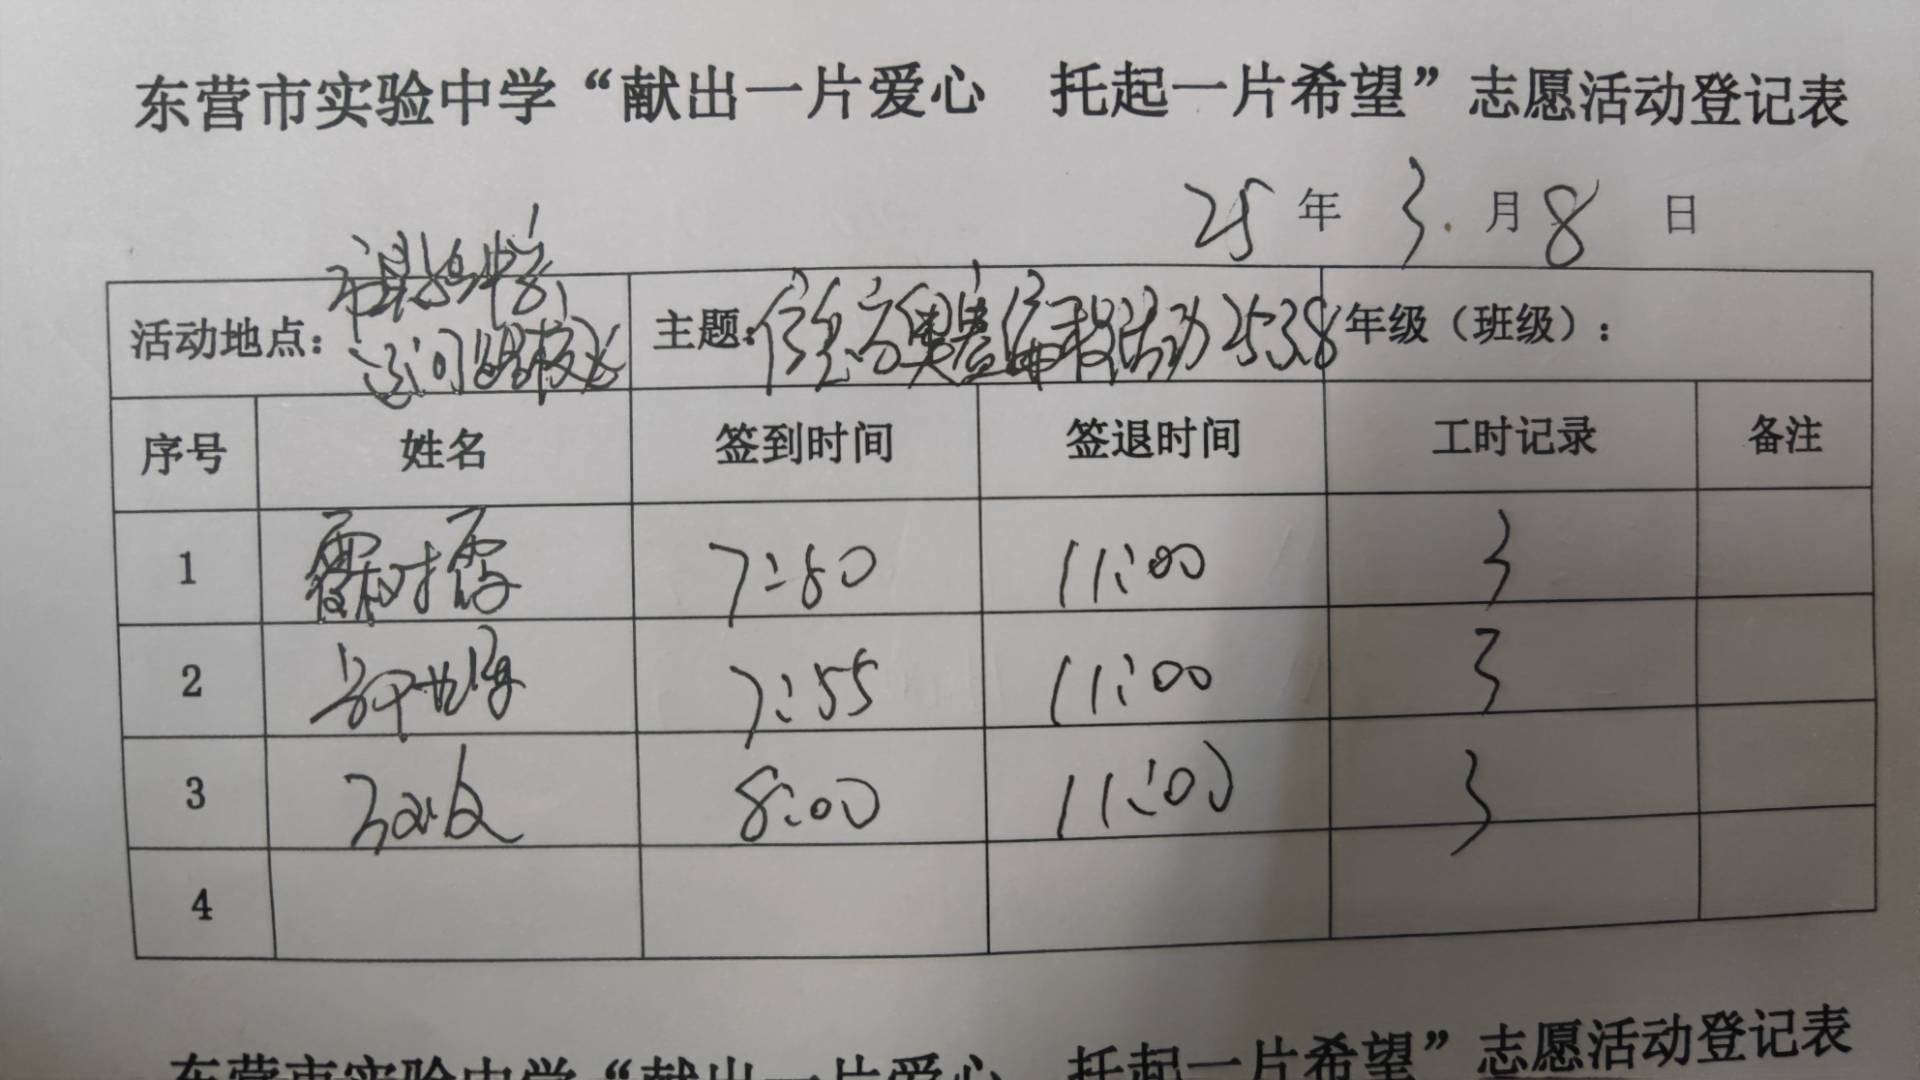 东营市实验中学“献出一片爱心 托起一片希望”志愿活动登记表
25年3.月8日
活动地点: 市实验中学 主题: 活动2538 年级（班级）:
序号 姓名 签到时间 签退时间 工时记录 备注
1 7:50 11:00 3
2 7:55 11:00 3
3 8:00 11:00 3
4
东营市实验中学“献出一片爱心 托起一片希望”志愿活动登记表